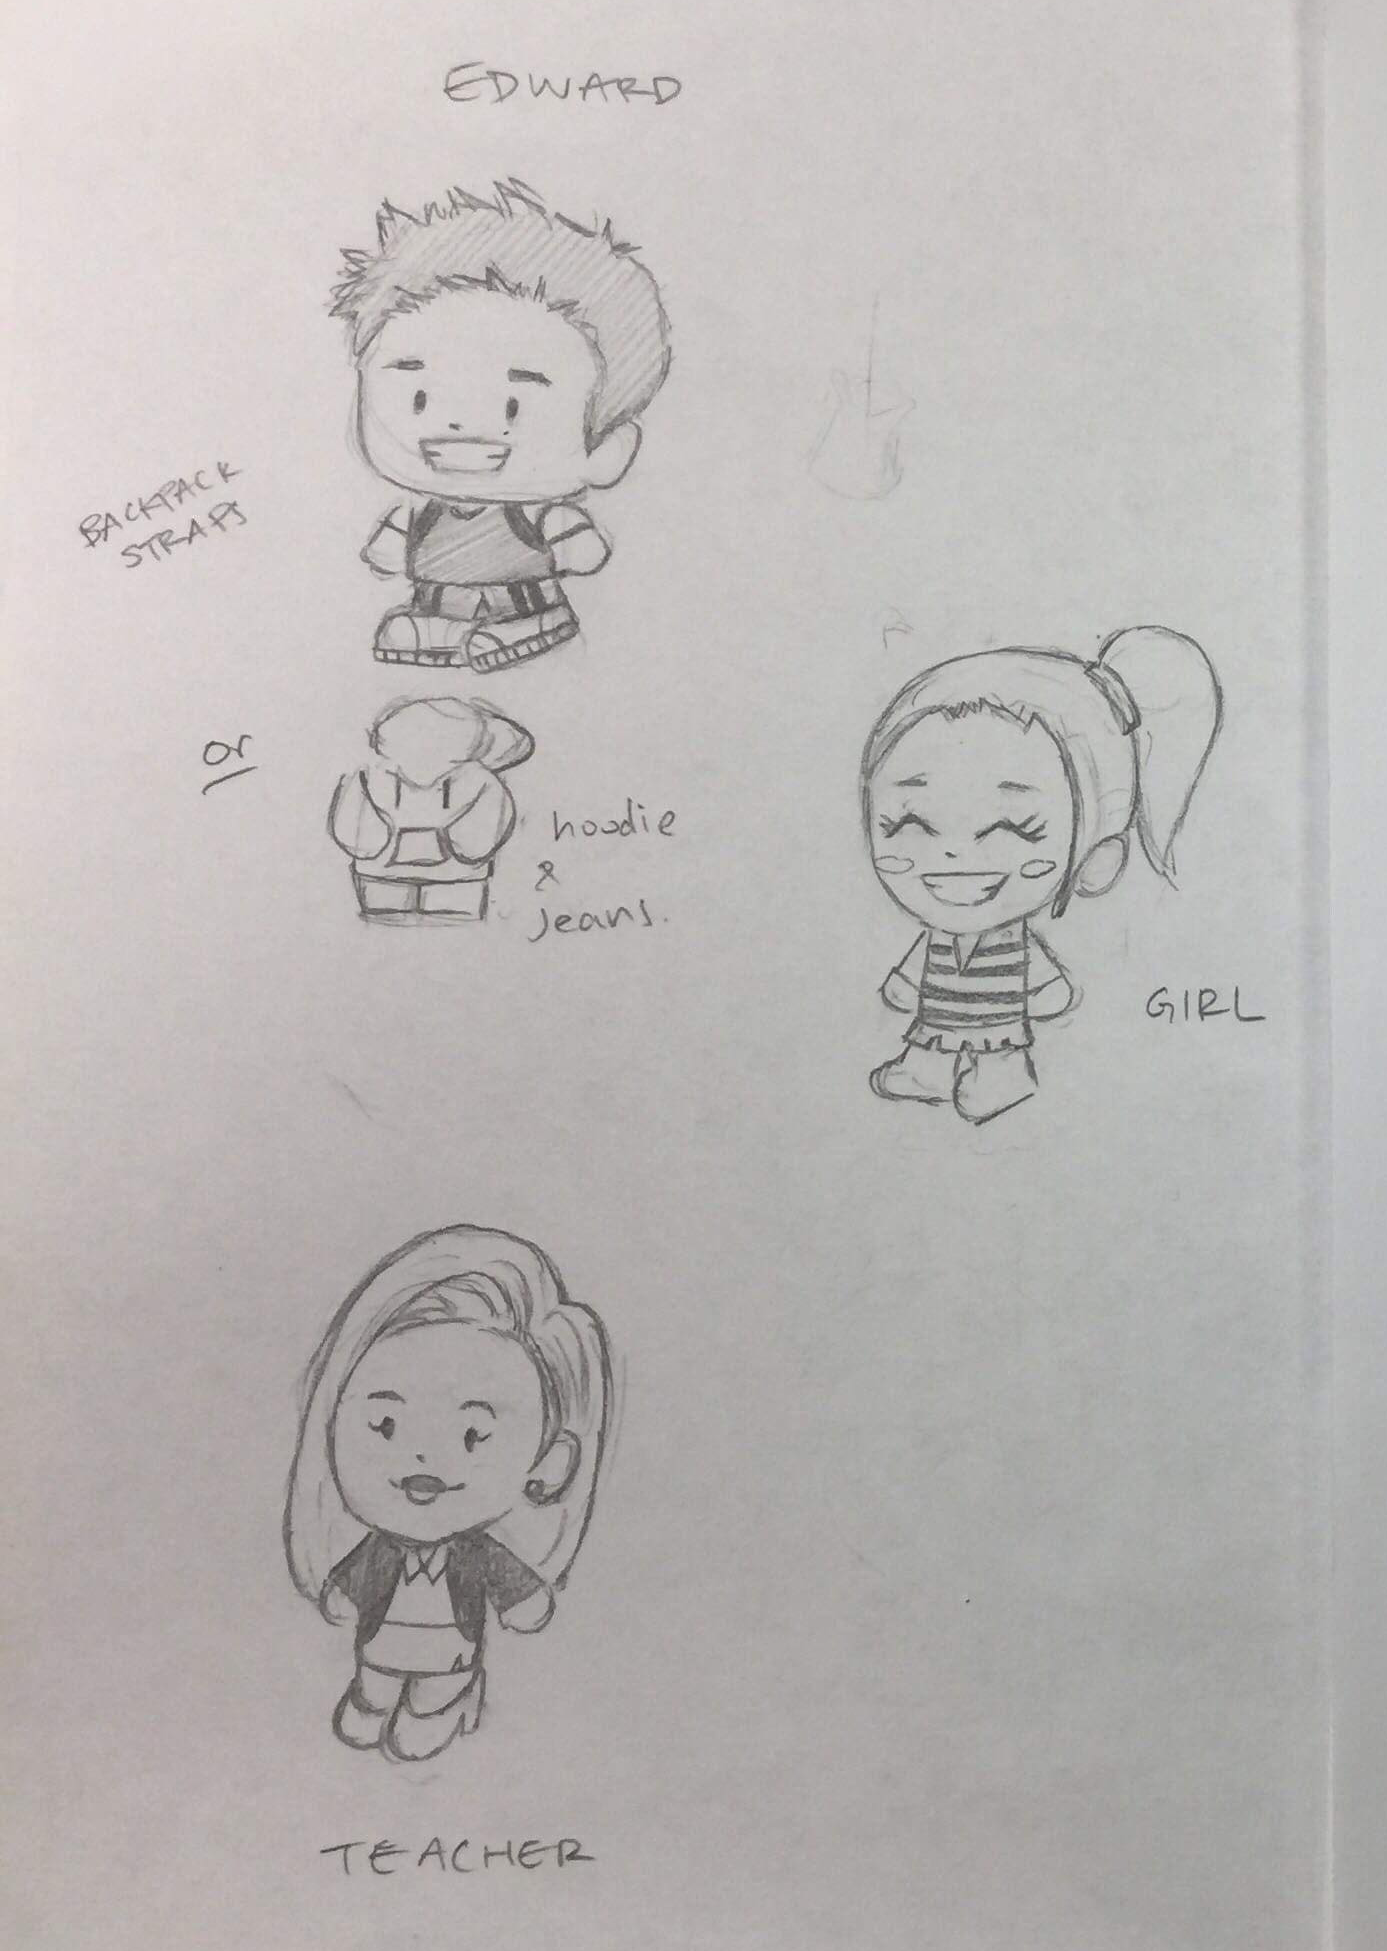 EDWARD
BACKPACK
STRAPS
or
hoodie
&
Jeans.
GIRL
TEACHER